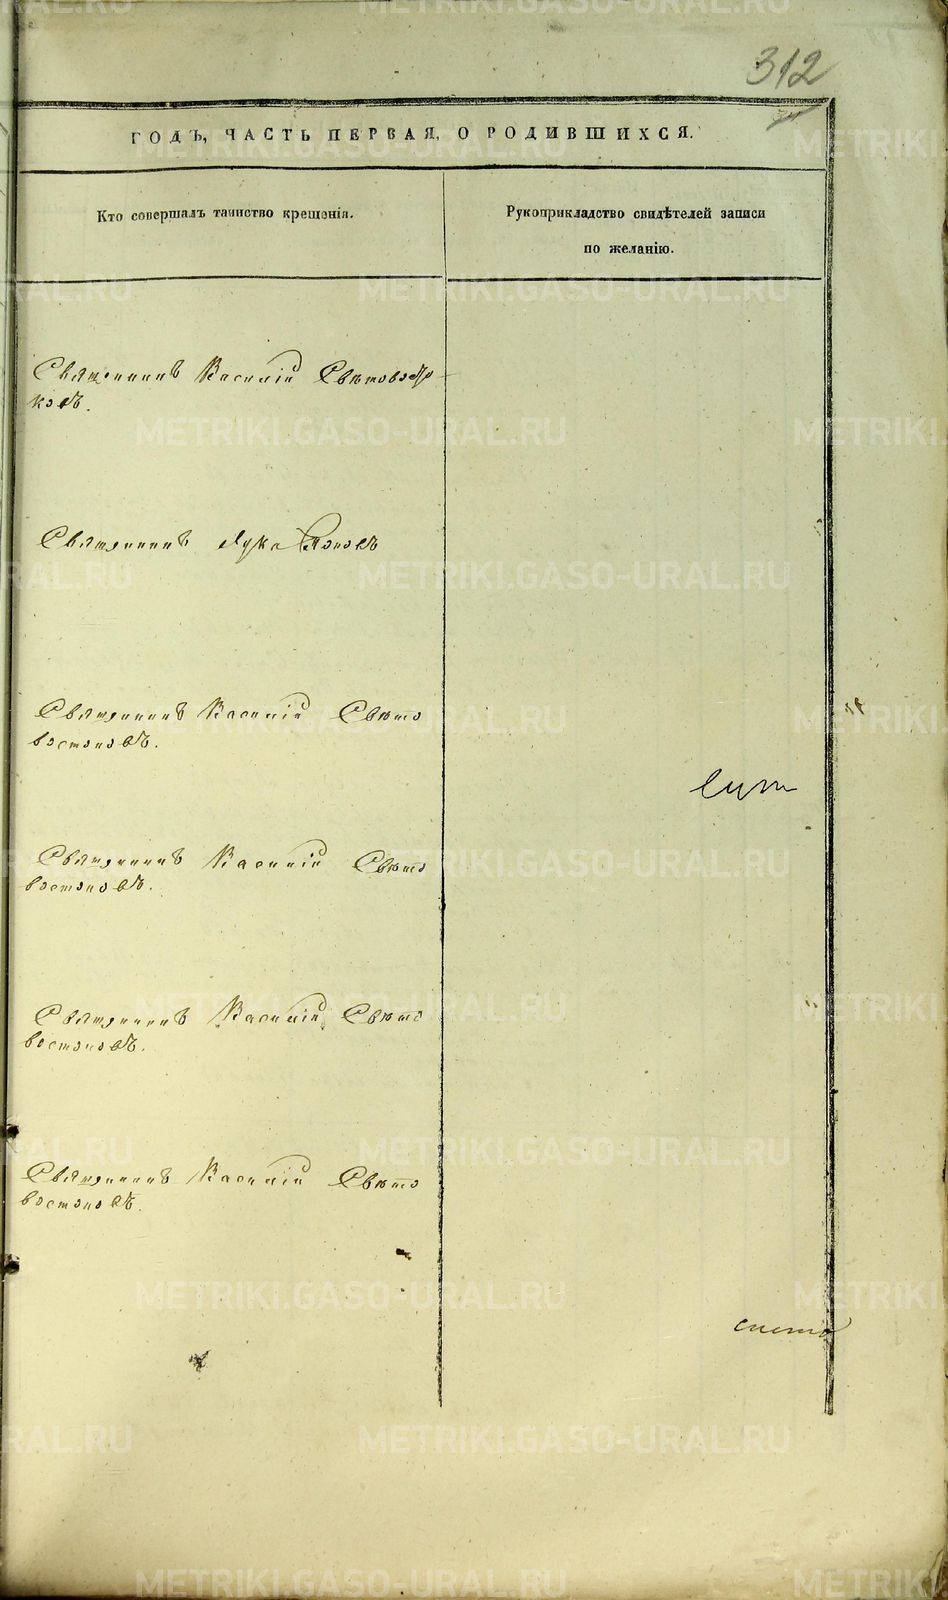 312
ГОДЪ, ЧАСТЬ ПЕРВАЯ, О РОДИВШИХСЯ.
Кто совершалъ таинство крещенія.
Рукоприкладство свидѣтелей записи
по желанію.
Священникъ Василій
Священникъ Лука Поповъ
Священникъ Василій Свѣто
востоковъ.
Священникъ Василій Свѣто
востоковъ.
Священникъ Василій Свѣто
востоковъ.
Священникъ Василій Свѣто
востоковъ.
METRIKI.GASO-URAL.RU